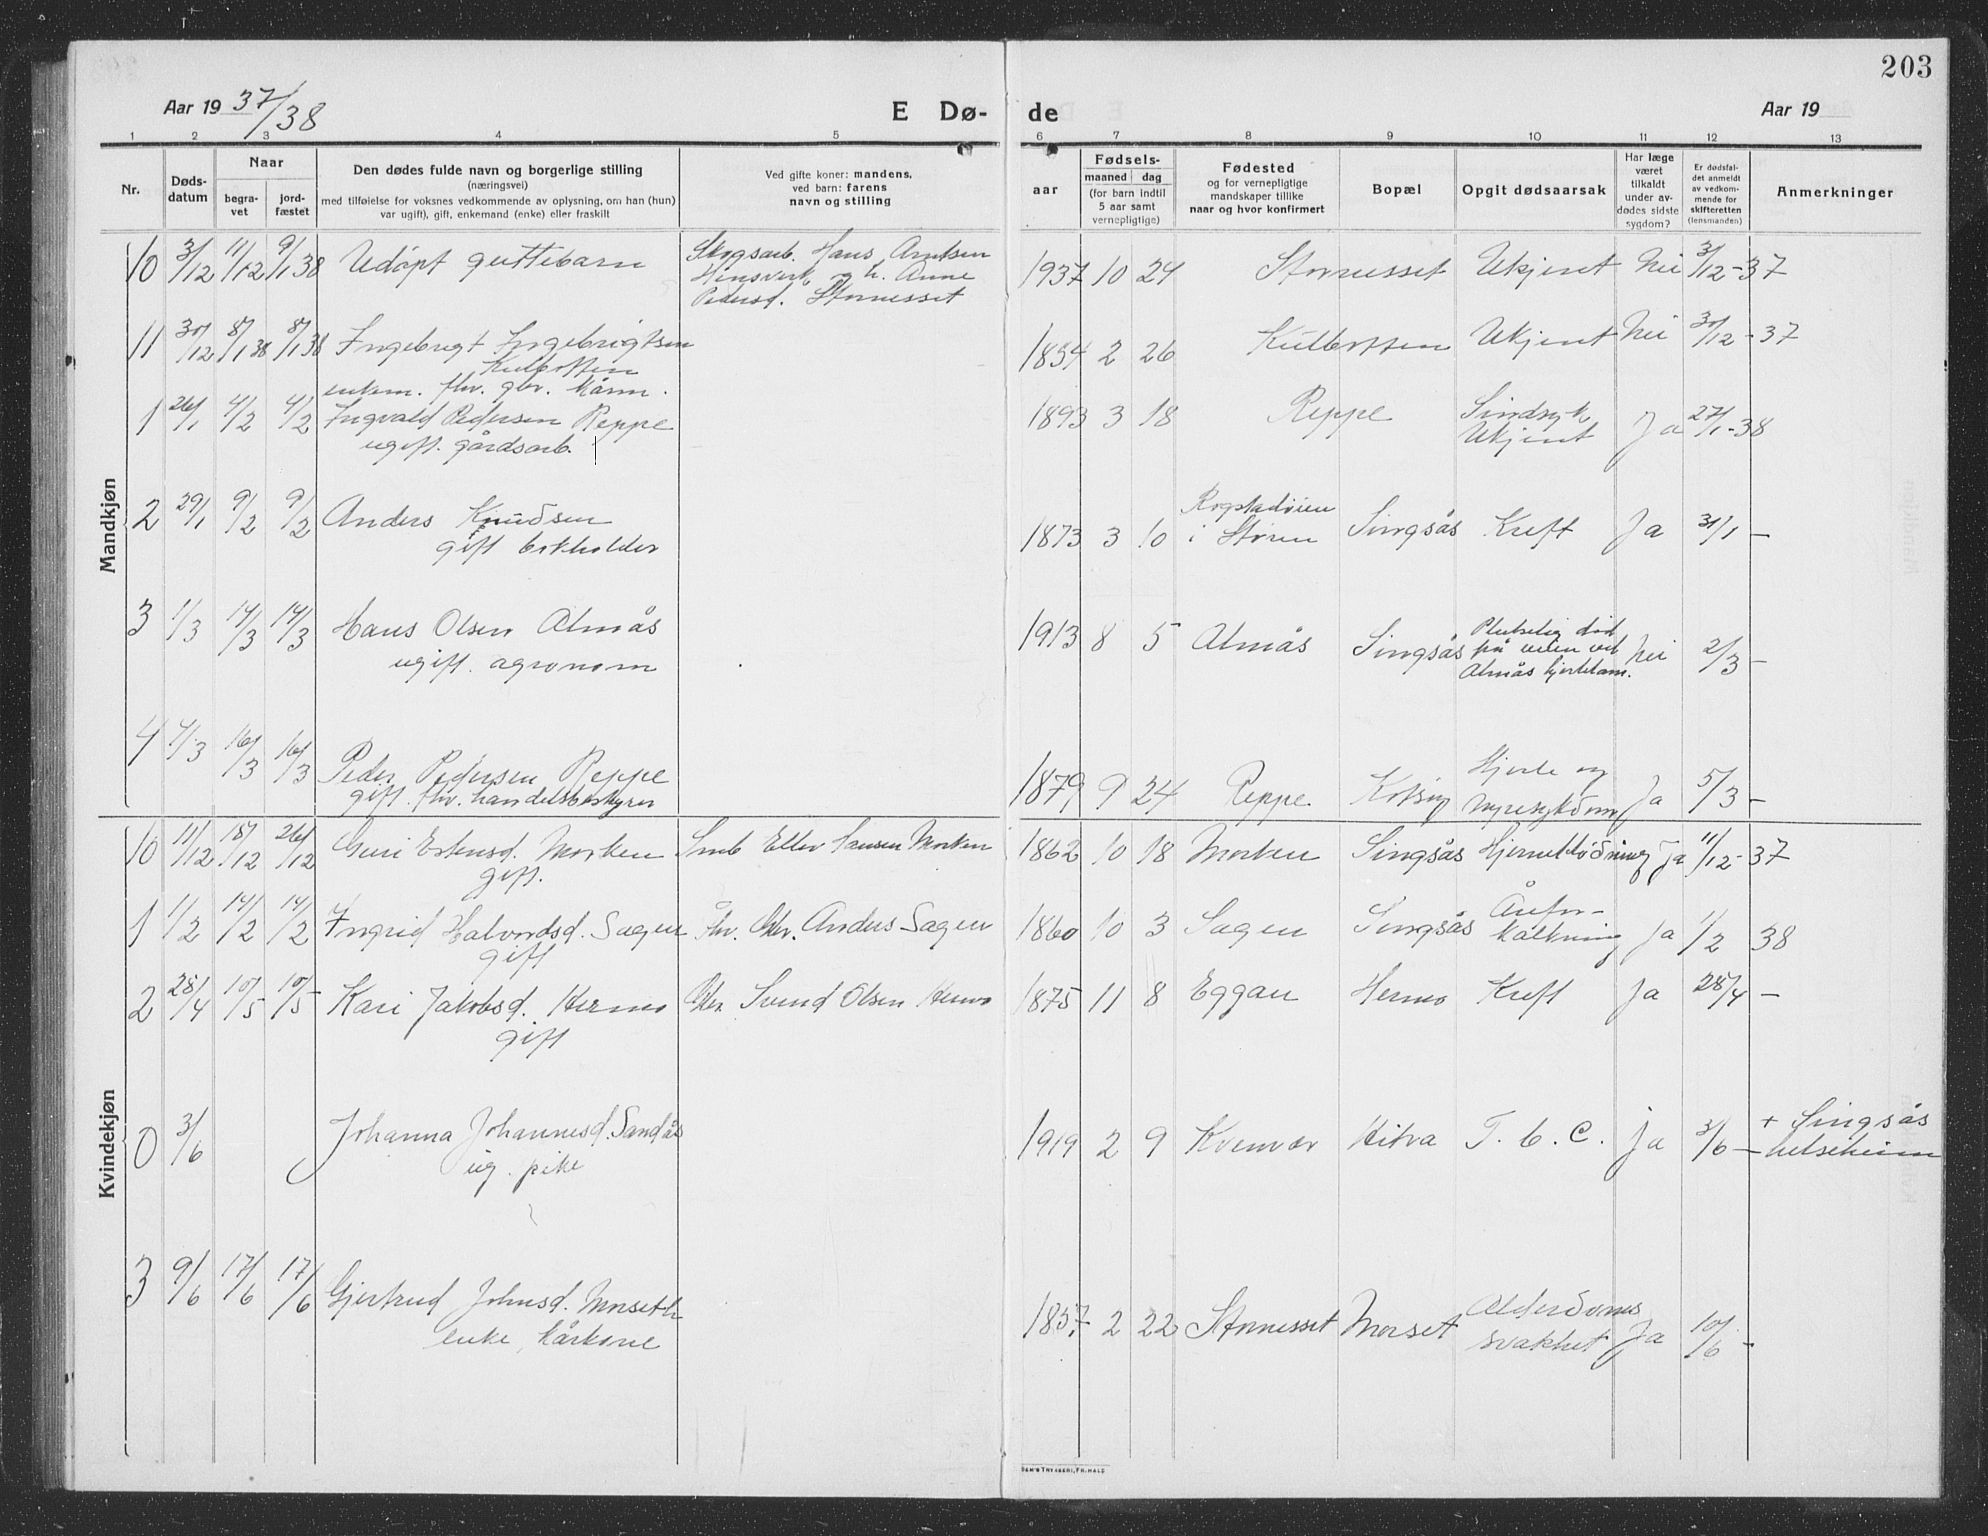 203
Aar 19 37/38
E Dø-
de
Aar 19
1 2 3 4 5 6 7 8 9 10 11 12 13
Nr.
Døds-
datum
Naar
begra-
vet
jord-
fæstet
Den dødes fulde navn og borgerlige stilling
(næringsvei)
med tilføielse for voksnes vedkommende av oplysning, om han (hun)
var ugift), gift, enkemand (enke) eller fraskilt
Ved gifte koner: mandens,
ved barn: farens
navn og stilling
aar
Fødsels-
maaned dag
(for barn indtil
5 aar samt
vernepligtige)
Fødested
og for vernepligtige
mandskaper tillike
naar og hvor konfirmert
Bopæl
Opgit dødsaarsak
Har læge
været
tilkaldt
under av-
dødes sidste
sygdom?
Er dødsfal-
det anmeldt
av vedkom-
mende for
skifteretten
(lensmanden)
Anmerkninger
Mandkjøn
10 3/12 11/12 9/1 38 Udøpt guttebarn Skogsarb. Hans Arntsen
Hinsverk og h. Anne
Pedersd. Stornesset
1937 10 24 Stornesset Ukjent Nei 3/12-37
11 30/12 8/1 38 8/1 38 Ingebrigt Ingebrigtsen
Kulbotten
enkem. fhv. gbr. kårm.
1834 2 26 Kulbotten Ukjent Nei 30/12-37
1 26/1 4/2 4/2 Ingvald Pedersen Reppe
ugift. gårdsarb.
1893 3 18 Reppe Sindsyk
Ukjent Ja 27/1-38
2 29/1 9/2 9/2 Anders Knudsen
gift bokholder
1873 3 10 Rogstadøien
i Støren Singsås Kreft Ja 31/1 -
3 1/3 14/3 14/3 Hans Olsen Almås
ugift. agronom
1913 8 5 Almås Singsås Plutselig død
på veien ved
Almås Nei 2/3 -
4 4/3 16/3 16/3 Peder Pedersen Reppe
gift. fhv. handelsbestyrer
1879 9 24 Reppe Kotsøy Hjerte og
nyresykdom Ja 5/3 -
Kvindekjøn
10 11/12 18/12 26/12 Guri Estensd. Morken
gift. Smb Ellev Hansen Morken
1862 10 18 Morken Singsås Hjerneblødning Ja 11/12-37
1 1/2 14/2 14/2 Ingrid Halvordsd. Sagen
gift fhv. Gbr. Anders Sagen
1860 10 3 Sagen Singsås Åefor-
kalkning Ja 1/2 38
2 28/4 10/5 10/5 Kari Jakobsd. Hermo
gift Gbr. Svend Olsen Hermo
1875 11 8 Eggan Hermo Kreft Ja 28/4 -
0 3/6 Johanna Johannesd. Sandås
ug. pike
1919 2 9 Kvenvær Hitra T. b. C. ja 3/6 - + Singsås
helseheim
3 9/6 17/6 17/6 Gjertrud Johnsd. Morseth
enke, kårkone
1857 2 22 Stornesset Morset Alderdoms
svakhet Ja 10/6 -